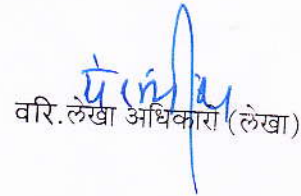 वरि. लेखा अधिकारी (लेखा)